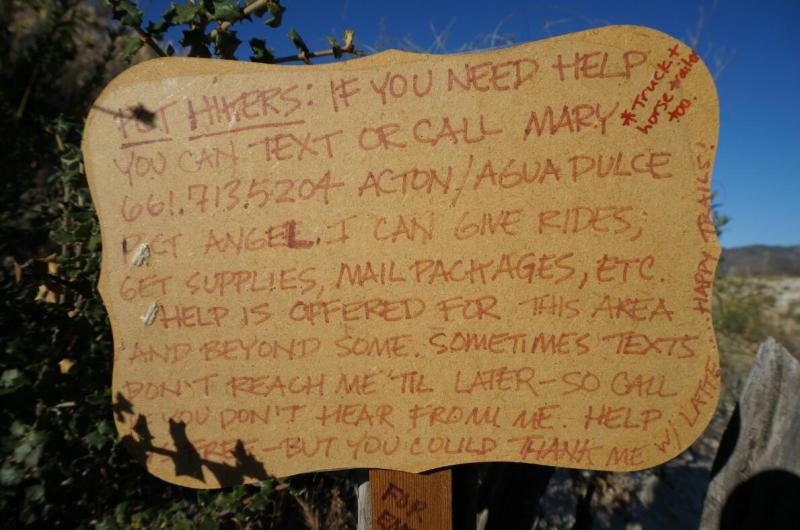 PCT HIKERS: IF YOU NEED HELP
YOU CAN TEXT OR CALL MARY
661.713.5204 ACTON/AGUA DULCE
PCT ANGEL. I CAN GIVE RIDES,
GET SUPPLIES, MAIL PACKAGES, ETC.
HELP IS OFFERED FOR THIS AREA
AND BEYOND SOME. SOMETIMES TEXTS
DON'T REACH ME 'TIL LATER-SO CALL
IF YOU DON'T HEAR FROM ME. HELP
IS FREE-BUT YOU COULD THANK ME W/ LATTE.
HAPPY TRAILS!
* TRUCK +
horse trailer
too.
FOR